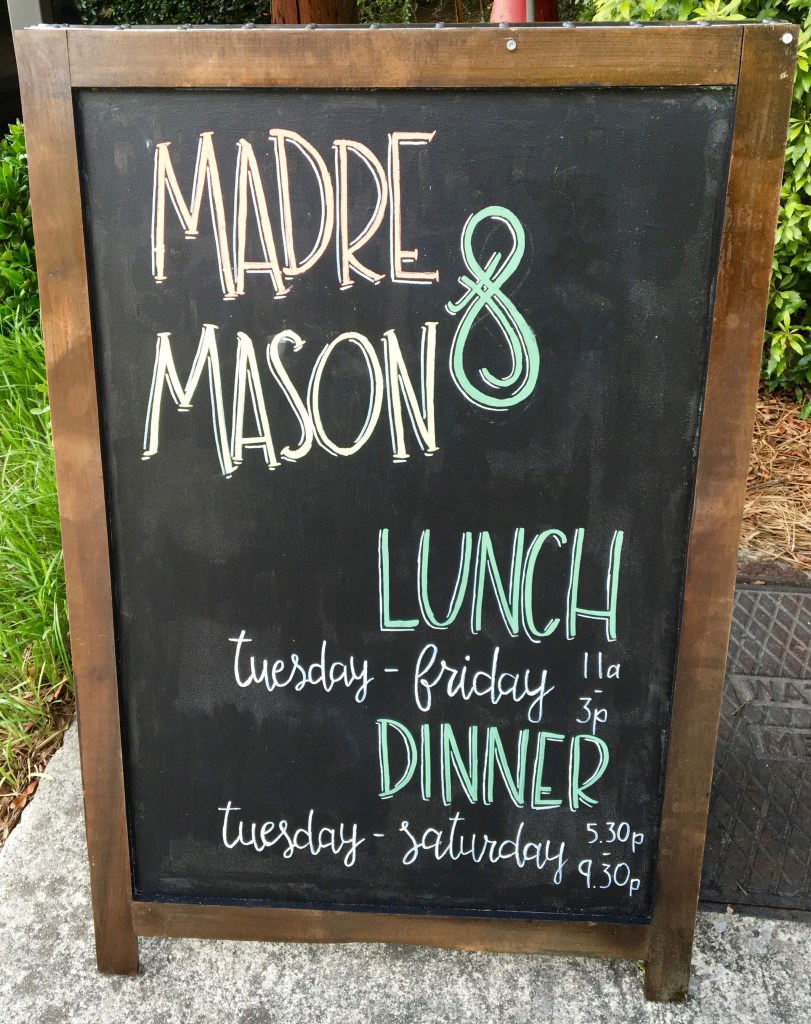 MADRE &
MASON
LUNCH
tuesday - friday 11a - 3p
DINNER
tuesday - saturday 5.30p - 9.30p